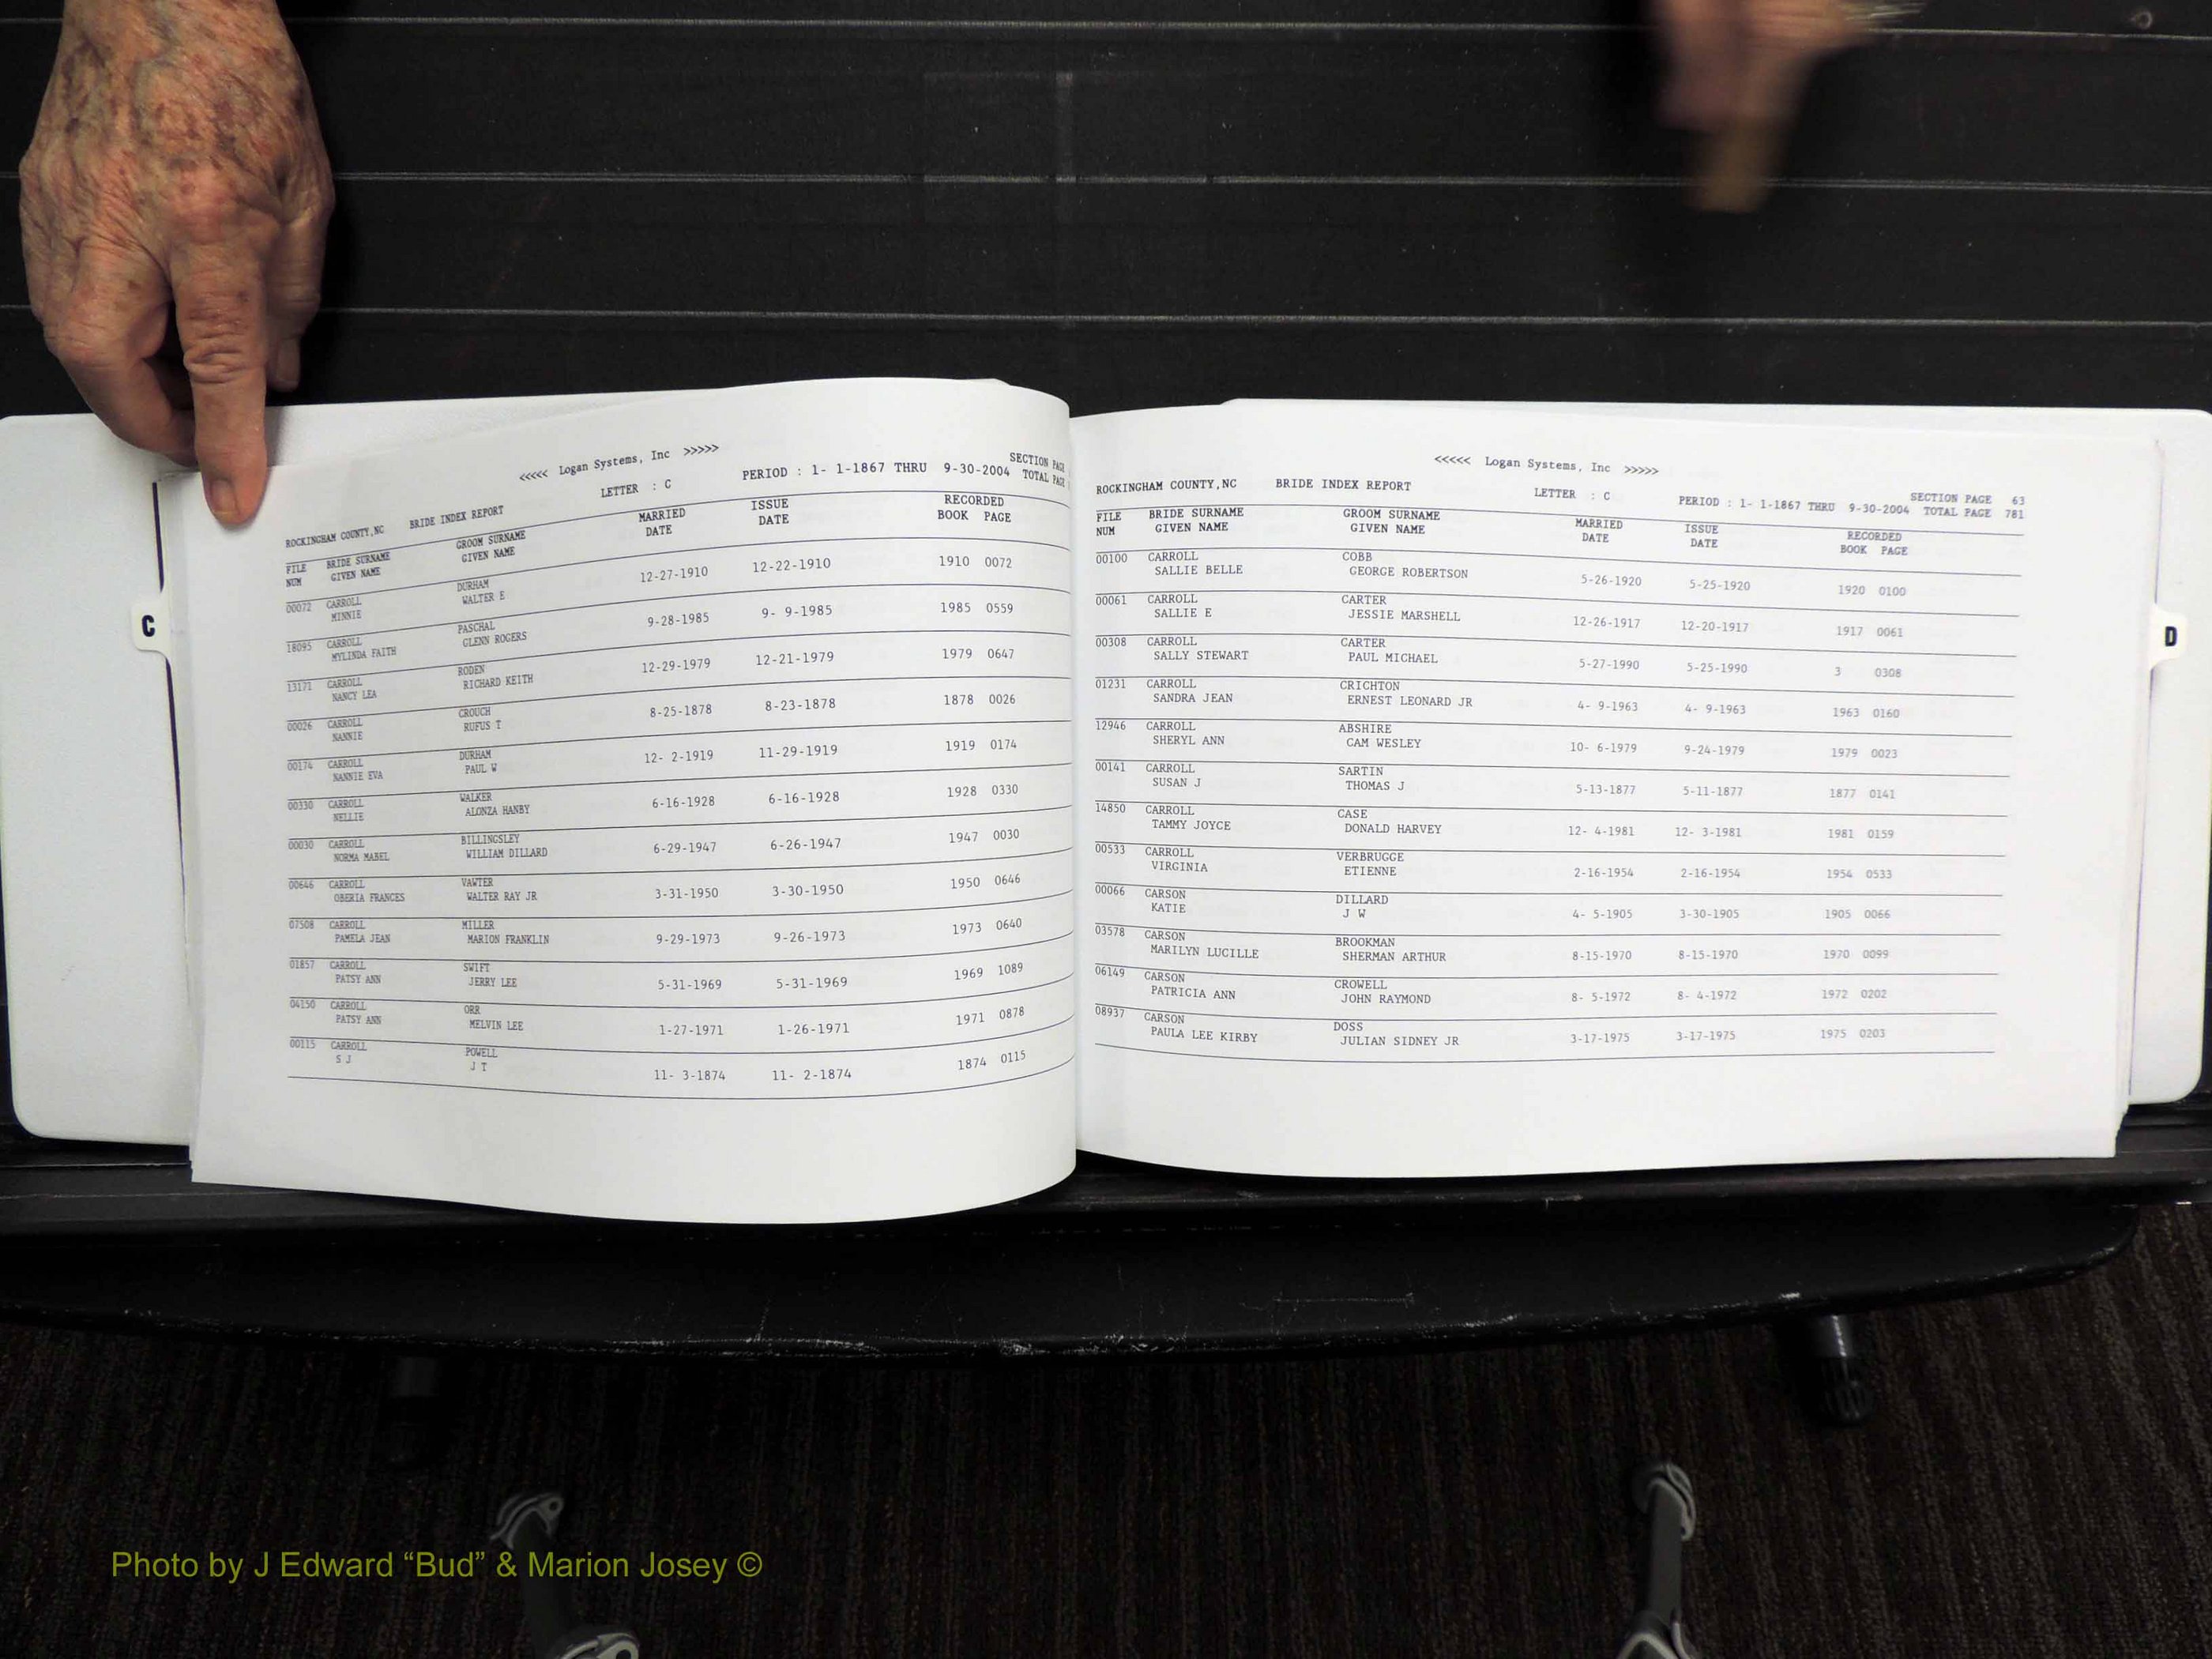 C
<<<<< Logan Systems, Inc >>>>>
SECTION PAGE
ROCKINGHAM COUNTY,NC BRIDE INDEX REPORT LETTER : C PERIOD : 1- 1-1867 THRU 9-30-2004 TOTAL PAGE
FILE BRIDE SURNAME GROOM SURNAME MARRIED ISSUE RECORDED
NUM GIVEN NAME GIVEN NAME DATE DATE BOOK PAGE
00072 CARROLL DURHAM
MINNIE WALTER E 12-27-1910 12-22-1910 1910 0072
18095 CARROLL PASCHAL
MYLINDA FAITH GLENN ROGERS 9-28-1985 9- 9-1985 1985 0559
13171 CARROLL RODEN
NANCY LEA RICHARD KEITH 12-29-1979 12-21-1979 1979 0647
00026 CARROLL CROUCH
NANNIE RUFUS T 8-25-1878 8-23-1878 1878 0026
00174 CARROLL DURHAM
NANNIE EVA PAUL W 12- 2-1919 11-29-1919 1919 0174
00330 CARROLL WALKER
NELLIE ALONZA HANBY 6-16-1928 6-16-1928 1928 0330
00030 CARROLL BILLINGSLEY
NORMA MABEL WILLIAM DILLARD 6-29-1947 6-26-1947 1947 0030
00646 CARROLL VAWTER
OBERIA FRANCES WALTER RAY JR 3-31-1950 3-30-1950 1950 0646
07508 CARROLL MILLER
PAMELA JEAN MARION FRANKLIN 9-29-1973 9-26-1973 1973 0640
01857 CARROLL SWIFT
PATSY ANN JERRY LEE 5-31-1969 5-31-1969 1969 1089
04150 CARROLL ORR
PATSY ANN MELVIN LEE 1-27-1971 1-26-1971 1971 0878
00115 CARROLL POWELL
S J J T 11- 3-1874 11- 2-1874 1874 0115
<<<<< Logan Systems, Inc >>>>>
SECTION PAGE 63
ROCKINGHAM COUNTY,NC BRIDE INDEX REPORT LETTER : C PERIOD : 1- 1-1867 THRU 9-30-2004 TOTAL PAGE 781
FILE BRIDE SURNAME GROOM SURNAME MARRIED ISSUE RECORDED
NUM GIVEN NAME GIVEN NAME DATE DATE BOOK PAGE
00100 CARROLL COBB
SALLIE BELLE GEORGE ROBERTSON 5-26-1920 5-25-1920 1920 0100
00061 CARROLL CARTER
SALLIE E JESSIE MARSHELL 12-26-1917 12-20-1917 1917 0061
00308 CARROLL CARTER
SALLY STEWART PAUL MICHAEL 5-27-1990 5-25-1990 3 0308
01231 CARROLL CRICHTON
SANDRA JEAN ERNEST LEONARD JR 4- 9-1963 4- 9-1963 1963 0160
12946 CARROLL ABSHIRE
SHERYL ANN CAM WESLEY 10- 6-1979 9-24-1979 1979 0023
00141 CARROLL SARTIN
SUSAN J THOMAS J 5-13-1877 5-11-1877 1877 0141
14850 CARROLL CASE
TAMMY JOYCE DONALD HARVEY 12- 4-1981 12- 3-1981 1981 0159
00533 CARROLL VERBRUGGE
VIRGINIA ETIENNE 2-16-1954 2-16-1954 1954 0533
00066 CARSON DILLARD
KATIE J W 4- 5-1905 3-30-1905 1905 0066
03578 CARSON BROOKMAN
MARILYN LUCILLE SHERMAN ARTHUR 8-15-1970 8-15-1970 1970 0099
06149 CARSON CROWELL
PATRICIA ANN JOHN RAYMOND 8- 5-1972 8- 4-1972 1972 0202
08937 CARSON DOSS
PAULA LEE KIRBY JULIAN SIDNEY JR 3-17-1975 3-17-1975 1975 0203
D
Photo by J Edward “Bud” & Marion Josey ©